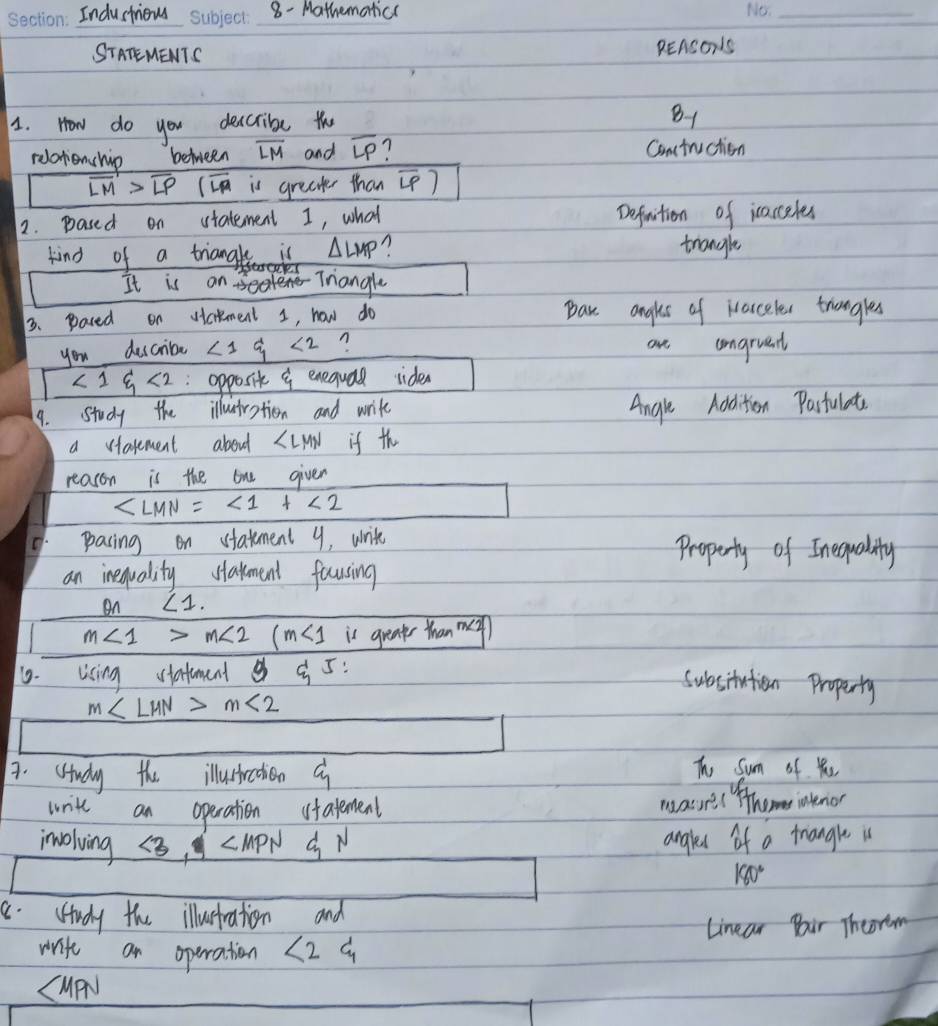 Section: Industrious Subject: 8 - Mathematics No:
STATEMENTS REASONS
1. How do you describe the By
relationship between LM and LP? Construction
LM > LP (LM is greater than LP)
2. Based on statement 1, what Definition of isosceles
kind of a triangle is ΔLMP? triangle
It is an isosceles Triangle
3. Based on statement 1, how do Base angles of isosceles triangles
you describe <1 & <2 ? are congruent
<1 & <2 : opposite & enequal sides
4. Study the illustration and write Angle Addition Postulate
a statement about <LMN if the
reason is the one given
<LMN = <1 + <2
5. Basing on statement 4, write Property of Inequality
an inequality statment focusing
on <1.
m<1 > m<2 (m<1 is greater than m<2)
6. Using statement & 5: Subsitution Property
m< LMN > m<2
7. Study the illustration & The Sum of the
write an operation statement measures of the interior
involving <3, <MPN & N angles of a triangle is
180°
8. Study the illustration and Linear Pair Theorem
write an operation <2 &
<MPN